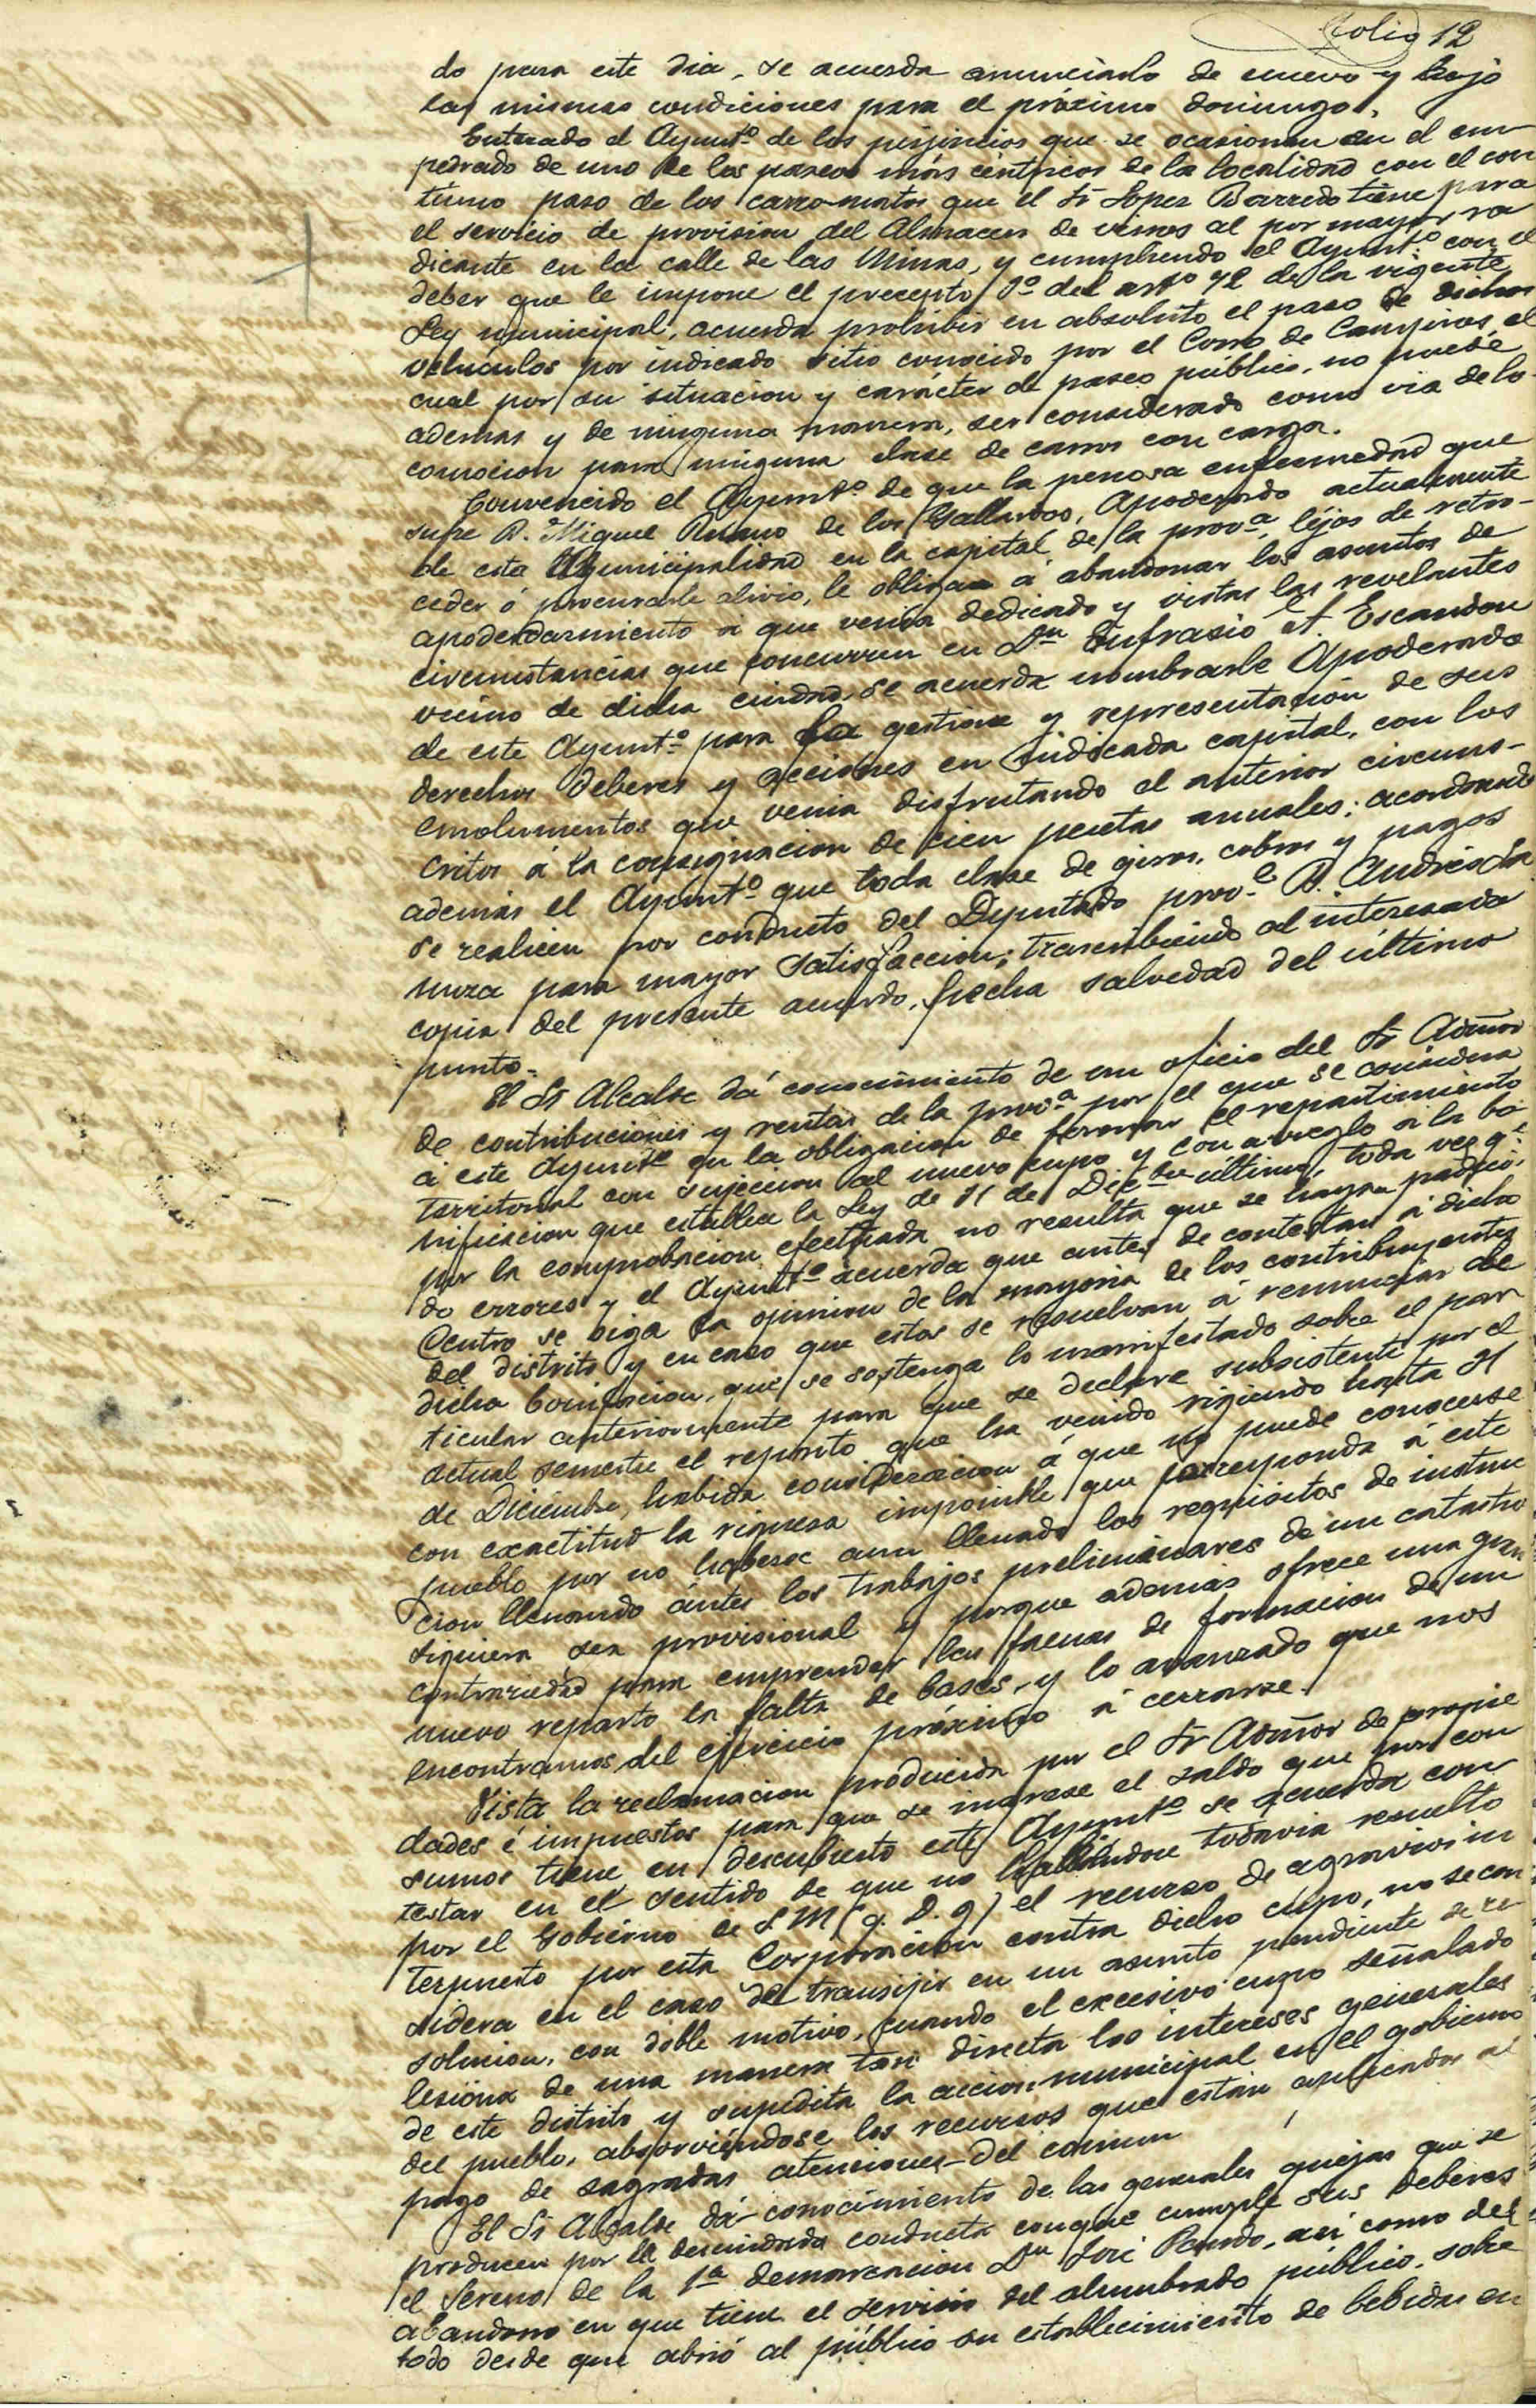 folio 12
do para este dia, se acuerda anunciarlo de nuevo y bajo
las mismas condiciones para el próximo domingo.
Enterado el Ayuntº de los perjuicios que se ocasionan en el em
pedrado de uno de los paseos más céntricos de la localidad con el con
tinuo paso de los carromatos que el Sr Lopez Barredo tiene para
el servicio de provision del Almacen de vinos al por mayor ra
dicante en la calle de las Minas, y cumpliendo el Ayuntº con el
deber que le impone el precepto 1º del artº 72 de la vigente
Ley municipal, acuerda prohibir en absoluto el paso de dichos
vehiculos por indicado sitio conocido por el Corro de Campinos, el
cual por su situacion y carácter de paseo público, no puede
ademas y de ninguna manera, ser considerado como via de lo
comocion para ninguna clase de carros con carga.
Convencido el Ayuntº de que la penosa enfermedad que
sufre D. Miguel Ruano de los Gallardos, Apoderado actualmente
de esta Municipalidad en la capital de la provª, léjos de retro-
ceder ó procurarle alivio, le obliga á abandonar los asuntos de
apoderdarmiento á que venia dedicado y vistas las revelantes
circunstancias que concurren en Dn Eufrasio A. Escandon
vecino de dicha ciudad, se acuerda nombrarle Apoderado
de este Ayuntº para la gestion y representación de sus
derechos deberes y acciones en indicada capital, con los
emolumentos que venia disfrutando el anterior circuns-
critos á la consignacion de cien pesetas anuales; acordando
además el Ayuntº que toda clase de giros, cobros y pagos
se realicen por conducto del Diputado provl D. Andrés La
nuza para mayor satisfaccion; trascribiendo al interesado
copia del presente acuerdo, hecha salvedad del último
punto.
El Sr Alcalde dá conocimiento de un oficio del Sr Admor
de contribuciones y rentas de la provª por el que se considera
á este Ayuntº en la obligacion de formar el repartimiento
territorial con sujecion al nuevo cupo y con arreglo á la bo
nificacion que establece la Ley de 31 de Dicbre último, toda vez qe
por la comprobacion efectuada no resulta que se hayan padeci
do errores y el Ayuntº acuerda que antes de contestar á dicho
Centro se oiga la opinion de la mayoria de los contribuyentes
del distrito y en caso que estos se resuelvan á renunciar de
dicha bonificacion, que se sostenga lo manifestado sobre el par
ticular anteriormente para que se declare subsistente por el
actual semestre el reparto que ha venido rigiendo hasta 31
de Diciembre, habida consideracion á que no puede conocerse
con exactitud la riqueza imponible que corresponda á este
pueblo por no haberse aun llenado los requisitos de instruc
cion llenando ántes los trabajos preliminares de un catastro
siquiera sea provisional y porque además ofrece una gran
contrariedad para emprender las faenas de formacion de un
nuevo reparto la falta de bases, y lo avanzado que nos
encontramos del ejercicio próximo á cerrarse.
Vista la reclamacion producida por el Sr Admor de propie
dades é impuestos para que se ingrese el saldo que por con
sumos tiene en descubierto este Ayuntº se acuerda con
testar en el sentido de que no hallándose todavia resuelto
por el Gobierno de S.M (q. D. g) el recurso de agravios in
terpuesto por esta Corporacion contra dicho cupo, no se con
sidera en el caso de transijir en un asunto pendiente de re
solucion, con doble motivo, cuando el excesivo cupo señalado
lesiona de una manera tan directa los intereses generales
de este distrito y supedita la accion municipal en el gobierno
del pueblo, absorviéndose los recursos que están aplicados al
pago de sagradas atenciones del comun
El Sr Alcalde dá conocimiento de las generales quejas que se
producen por la descuidada conducta conque cumple sus deberes
el Sereno de la 1ª demarcacion Dn José Pardo, asi como del
abandono en que tiene el servicio del alumbrado público, sobre
todo desde que abrió al público su establecimiento de bebidas en